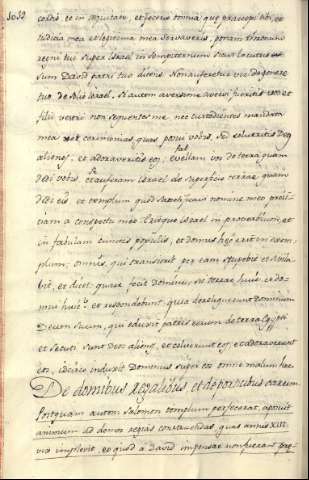 cordis, et in aequitate, et feceris omnia, quae praecepi tibi, et
iudicia mea et legitima mea servaveris, ponam thronum
regni tui super Israel in sempiternum, sicut locutus
sum David patri tuo dicens: Non auferetur vir de genere
tuo de solio Israel. Si autem aversione aversi fueritis vos et
filii vestri non sequentes me, nec custodientes mandata
mea et ceremonias, quas posui vobis, sed colueritis Deos
alienos, et adoraveritis eos,
dedi vobis, et auferam Israel de superficie terrae, quam
dedi eis, et templum quod sanctificavi nomine meo proii-
ciam a conspectu meo. Eritque Israel in proverbium, et
in fabulam cunctis populis, et domus haec erit in exem-
plum; omnes, qui transierit per eam stupebit et sibila-
bit, et dicet: quare fecit Dominus sic terrae huic, et do-
mui huic? et respondebunt: quia dereliquerunt Dominum
Deum suum, qui eduxit patres eorum de terra Egypti
et secuti sunt deos alienos, et coluerunt eos, et adoraverunt
eos, idcirco induxit Dominus super eos omne malum hoc.
De domibus regalibus, et de porticibus earum
Postquam autem Salomon templum perfecerat, apposuit
animum ad domos regias construendas, quas annis XIII
vix implevit, eo quod a David impensae non fuerant prae-